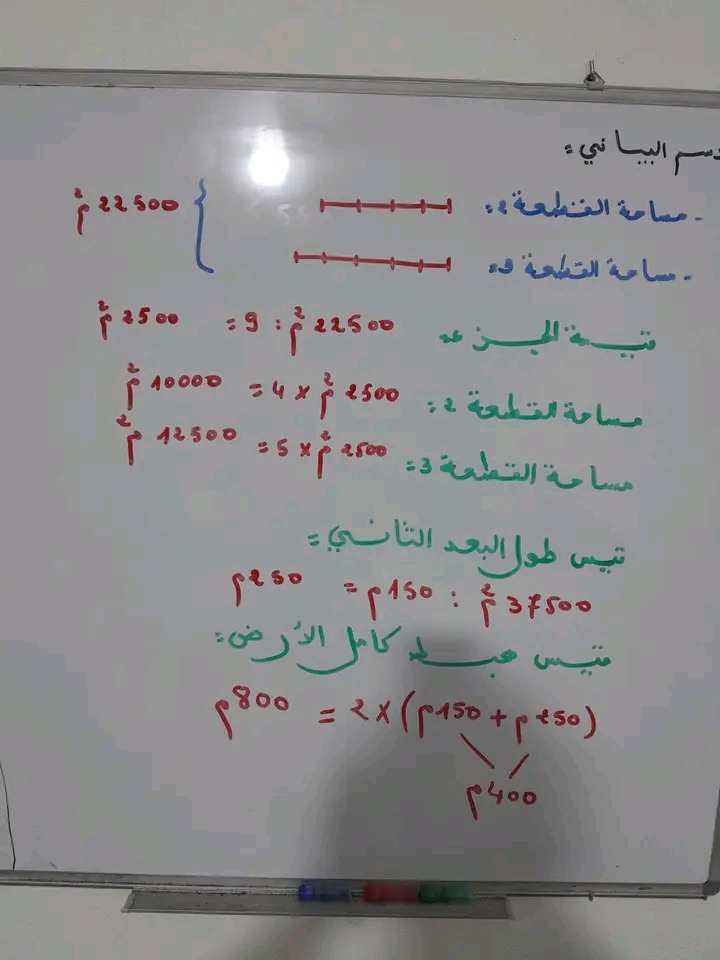 رسم البياني:
- مساحة القطعة 2:
22500 م²
- مساحة القطعة 3:
قيمة الجزء: 22500 م² : 9 = 2500 م²
مساحة القطعة 2: 2500 م² × 4 = 10000 م²
مساحة القطعة 3: 2500 م² × 5 = 12500 م²
قيس طول البعد الثاني:
37500 م² : 150 م = 250 م
قيس محيط كامل الأرض:
(250 م + 150 م) × 2 = 800 م
400 م